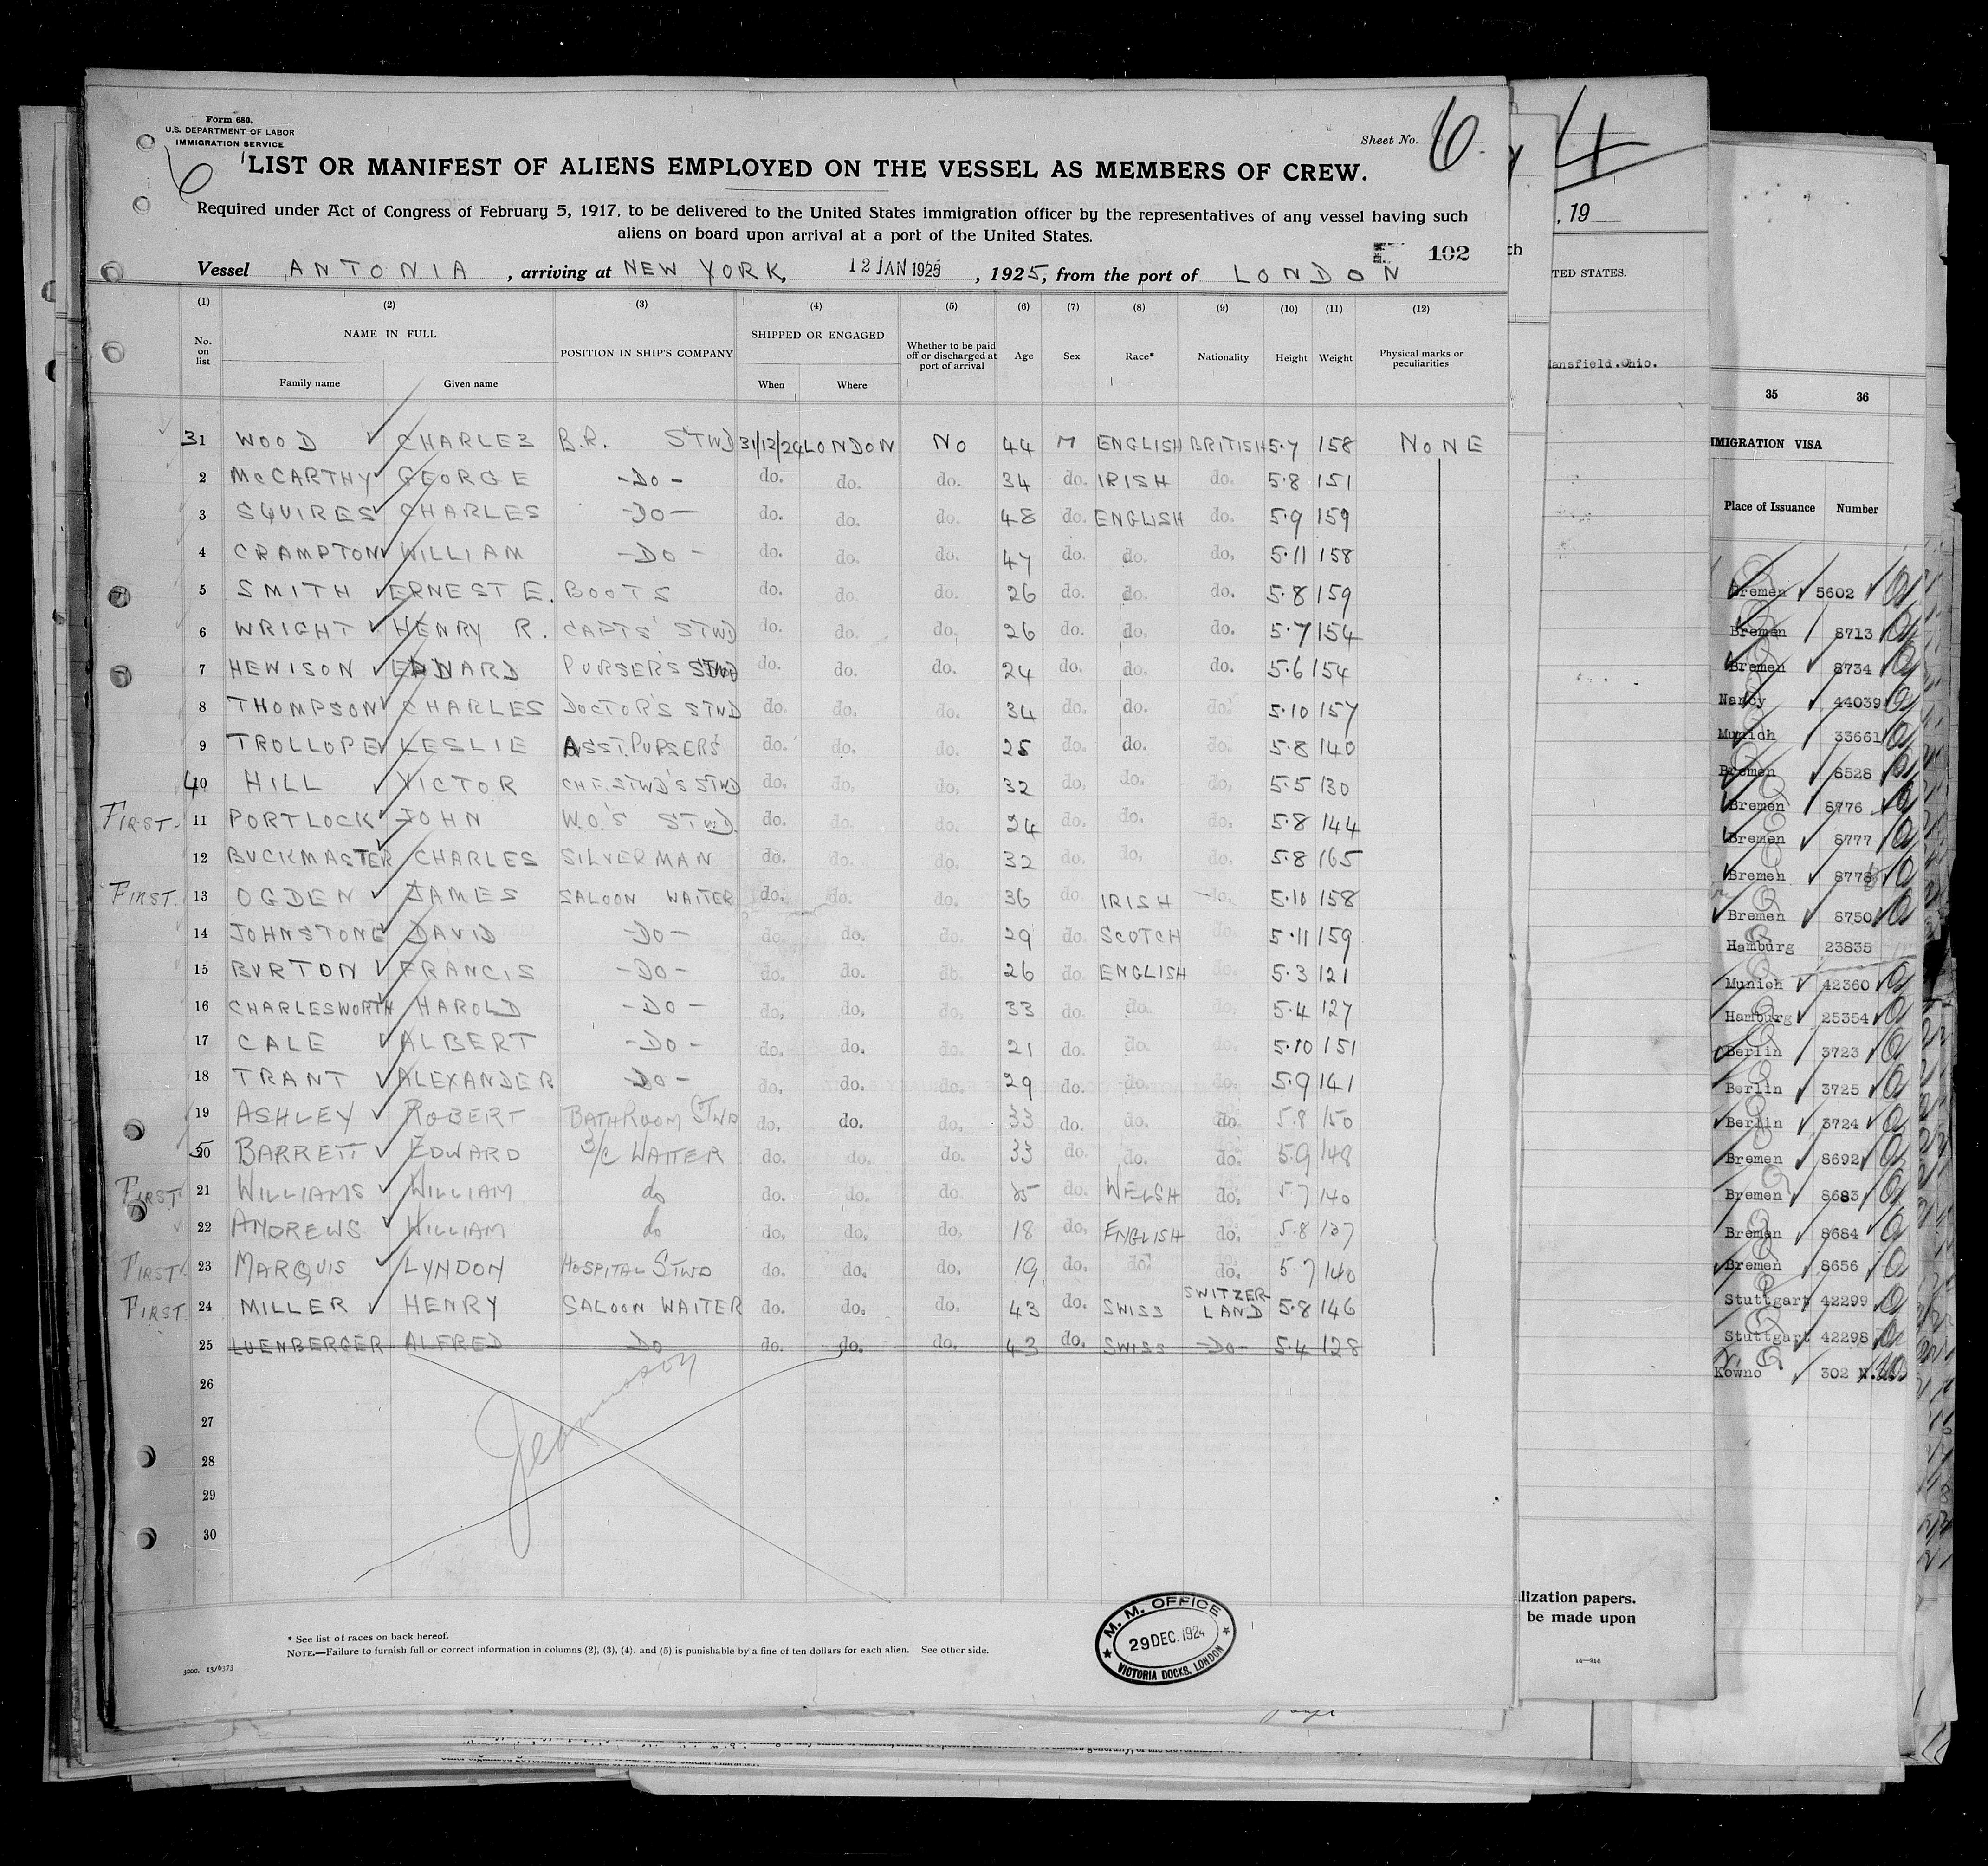 Form 680.
U.S. DEPARTMENT OF LABOR
IMMIGRATION SERVICE
Sheet No. 6.
6
LIST OR MANIFEST OF ALIENS EMPLOYED ON THE VESSEL AS MEMBERS OF CREW.
Required under Act of Congress of February 5, 1917, to be delivered to the United States immigration officer by the representatives of any vessel having such
aliens on board upon arrival at a port of the United States.
102
Vessel ANTONIA, arriving at NEW YORK, 12 JAN 1925, 1925, from the port of LONDON
(1) (2) (3) (4) (5) (6) (7) (8) (9) (10) (11) (12)
No. on list NAME IN FULL POSITION IN SHIP'S COMPANY SHIPPED OR ENGAGED Whether to be paid off or discharged at port of arrival Age Sex Race* Nationality Height Weight Physical marks or peculiarities
Family name Given name When Where
31 WOOD CHARLES B.R. STWD 31/12/24 LONDON NO 44 M ENGLISH BRITISH 5.7 158 NONE
2 McCARTHY GEORGE -DO- do. do. do. 34 do. IRISH do. 5.8 151
3 SQUIRES CHARLES -DO- do. do. do. 48 do. ENGLISH do. 5.9 159
4 CRAMPTON WILLIAM -DO- do. do. do. 47 do. do. do. 5.11 158
5 SMITH ERNEST E. BOOTS do. do. do. 26 do. do. do. 5.8 159
6 WRIGHT HENRY R. CAPTS' STWD do. do. do. 26 do. do. do. 5.7 154
7 HEWISON EDWARD PURSER'S STWD do. do. do. 24 do. do. do. 5.6 154
8 THOMPSON CHARLES DOCTOR'S STWD do. do. do. 34 do. do. do. 5.10 157
9 TROLLOPE LESLIE ASST. PURSERS do. do. do. 25 do. do. do. 5.8 140
40 HILL VICTOR CHF. STWD'S STWD do. do. do. 32 do. do. do. 5.5 130
FIRST. 11 PORTLOCK JOHN W.O.'S STWD. do. do. do. 24 do. do. do. 5.8 144
12 BUCKMASTER CHARLES SILVERMAN do. do. do. 32 do. do. do. 5.8 165
FIRST. 13 OGDEN JAMES SALOON WAITER do. do. do. 36 do. IRISH do. 5.10 158
14 JOHNSTONE DAVID -DO- do. do. do. 29 do. SCOTCH do. 5.11 159
15 BURTON FRANCIS -DO- do. do. do. 26 do. ENGLISH do. 5.3 121
16 CHARLESWORTH HAROLD -DO- do. do. do. 33 do. do. do. 5.4 127
17 CALE ALBERT -DO- do. do. do. 21 do. do. do. 5.10 151
18 TRANT ALEXANDER -DO- do. do. do. 29 do. do. do. 5.9 141
19 ASHLEY ROBERT BATHROOM STWD do. do. do. 33 do. do. do. 5.8 150
50 BARRETT EDWARD 3/C WAITER do. do. do. 33 do. do. do. 5.9 148
FIRST 21 WILLIAMS WILLIAM do do. do. do. do. WELSH do. 5.7 140
22 ANDREWS WILLIAM do do. do. do. 18 do. ENGLISH do. 5.8 137
FIRST. 23 MARQUIS LYNDON HOSPITAL STWD do. do. do. 19 do. do. do. 5.7 140
FIRST. 24 MILLER HENRY SALOON WAITER do. do. do. 43 do. SWISS SWITZERLAND 5.8 146
25 LUENBERGER ALFRED DO do. do. do. 43 do. SWISS -DO- 5.4 128
26
27
28
29
30
* See list of races on back hereof.
NOTE.—Failure to furnish full or correct information in columns (2), (3), (4). and (5) is punishable by a fine of ten dollars for each alien. See other side.
3000. 13/6373
M. M. OFFICE
29 DEC. 1924
VICTORIA DOCKS, LONDON
4
, 19
TED STATES.
ansfield.Ohio.
lization papers.
be made upon
35 36
MMIGRATION VISA
Place of Issuance Number
Bremen 5602
Bremen 8713
Bremen 8734
Nancy 44039
Munich 33661
Bremen 8528
Bremen 8776
Bremen 8777
Bremen 8778
Bremen 8750
Hamburg 23835
Munich 42360
Hamburg 25354
Berlin 3723
Berlin 3725
Berlin 3724
Bremen 8692
Bremen 8683
Bremen 8684
Bremen 8656
Stuttgart 42299
Stuttgart 42298
Kowno 302